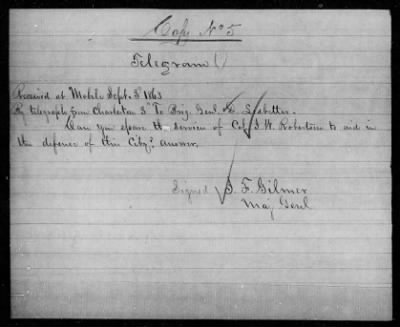 Copy No 5
Telegram
Received at Mobile Sept. 3d 1863
By telegraph from Charleston 3d To Brig. Genl. D. Leadbetter.
Can you spare the services of Col. J. W. Robertson to aid in
the defence of this City? Answer.
Signed J. F. Gilmer
Maj Genl